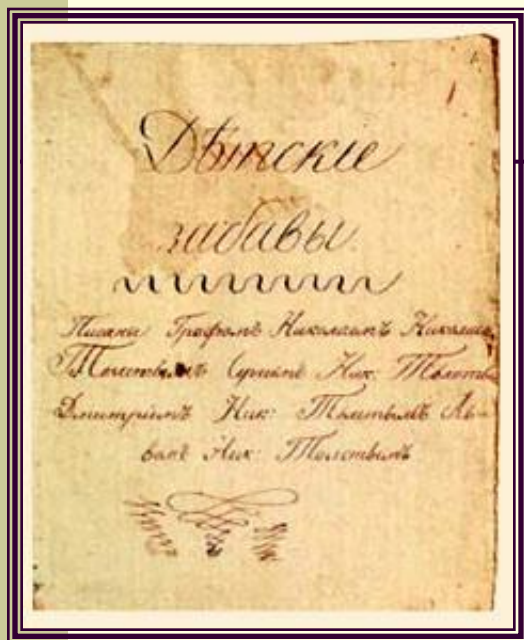 Дѣтскіе
забавы.
Писаны Графомъ Николаимъ Николаи
Толстымъ Сергимъ Ник: Толсты
Дмитріимъ Ник: Толстымъ Ль-
вомъ Ник: Толстымъ